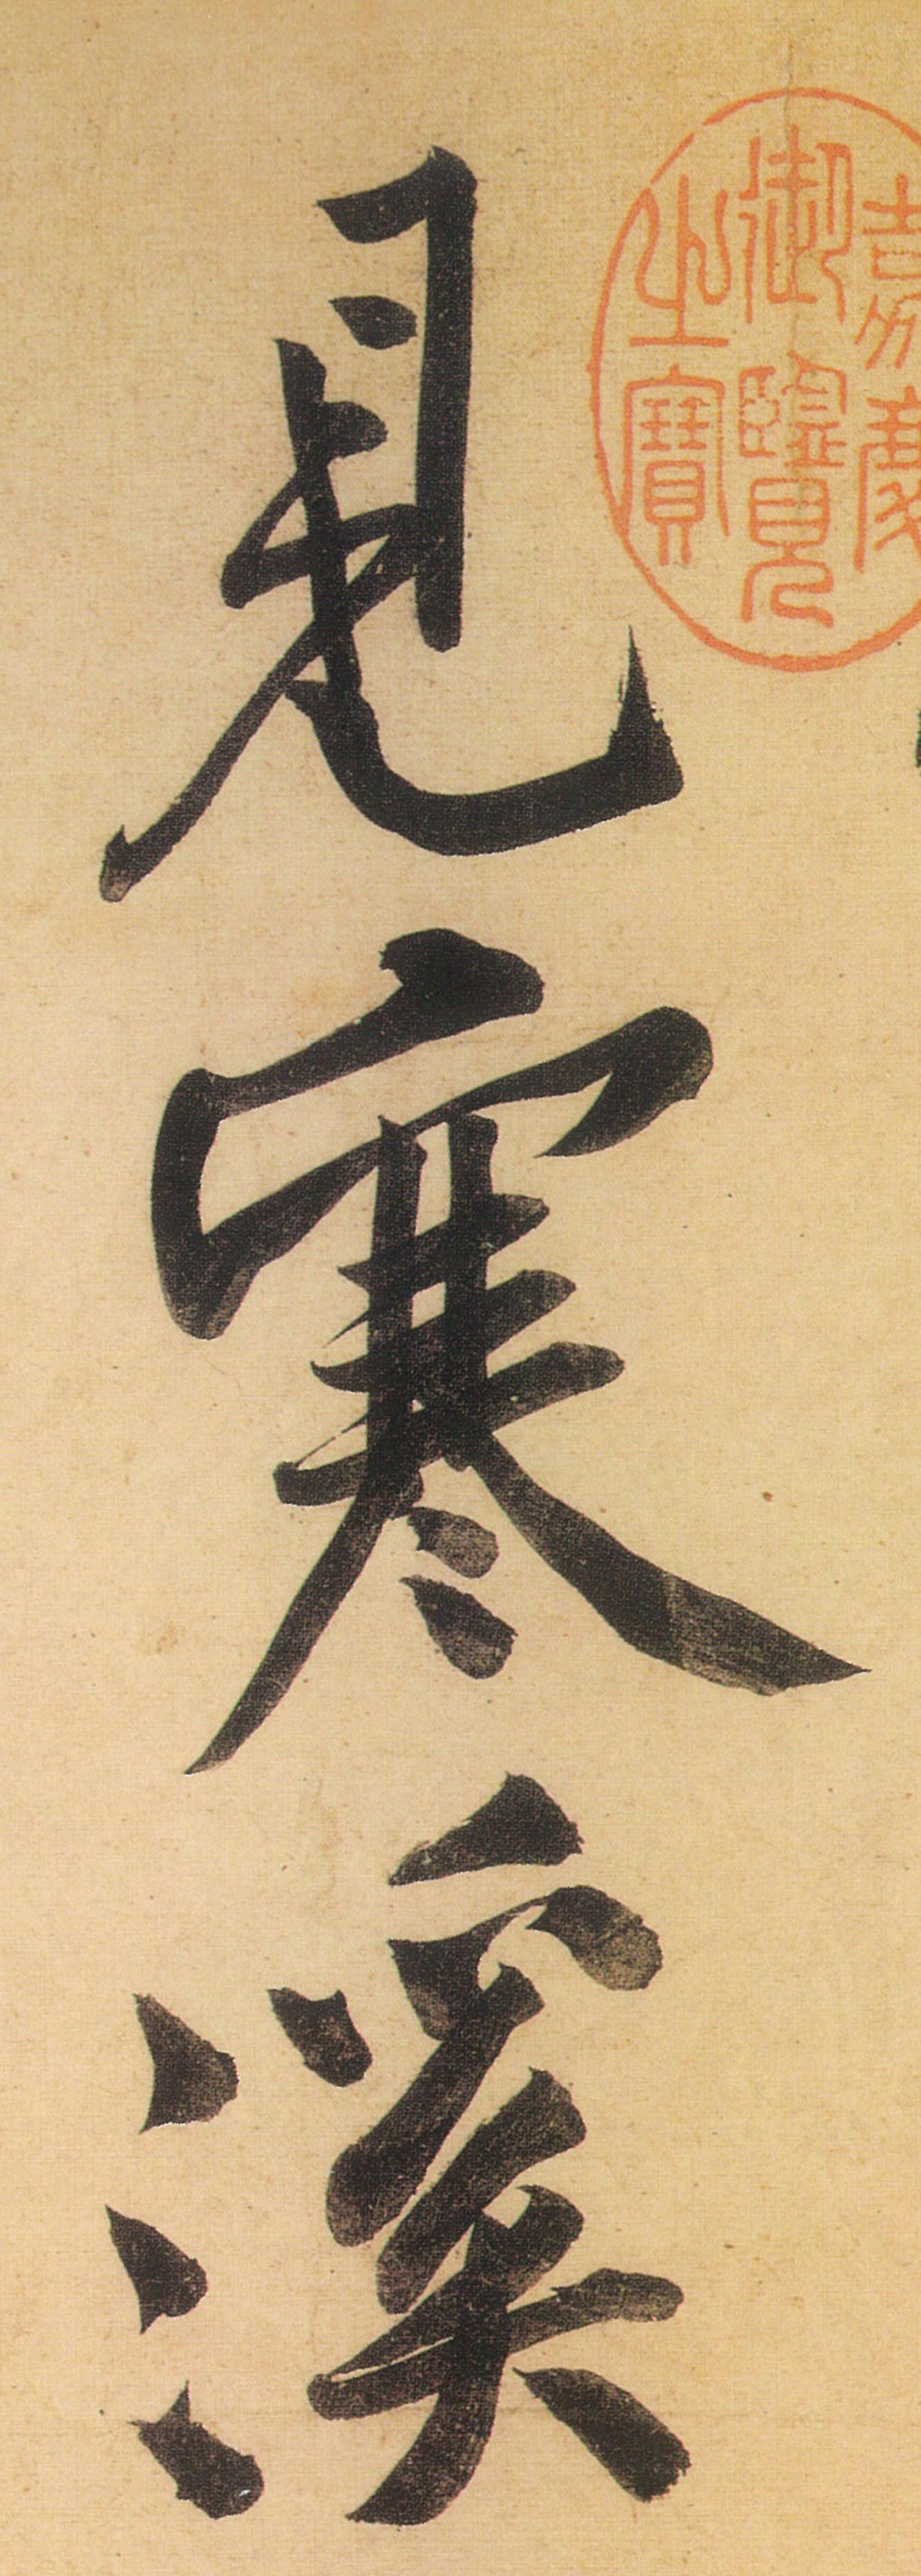 嘉慶
御覽
之寶
見寒溪